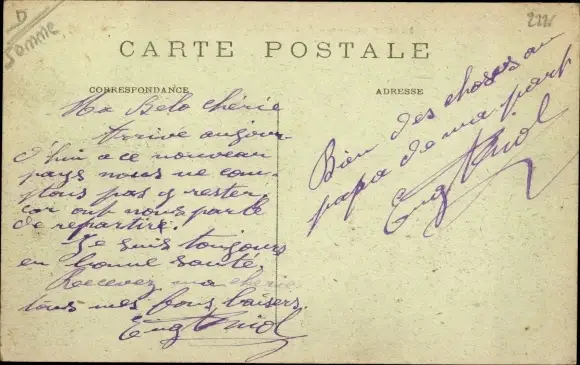 D
Somme
2221
CARTE POSTALE
CORRESPONDANCE
Ma Belo chérie
Arrive aujour
d'hui a ce nouveau
pays nous ne com-
ptons pas y rester,
car ont nous parle
de repartire.
Je suis toujours
en bonne santé,
Recevez ma cherie
tous mes bons baisers.
ADRESSE
Bien des choses au
papa de ma part